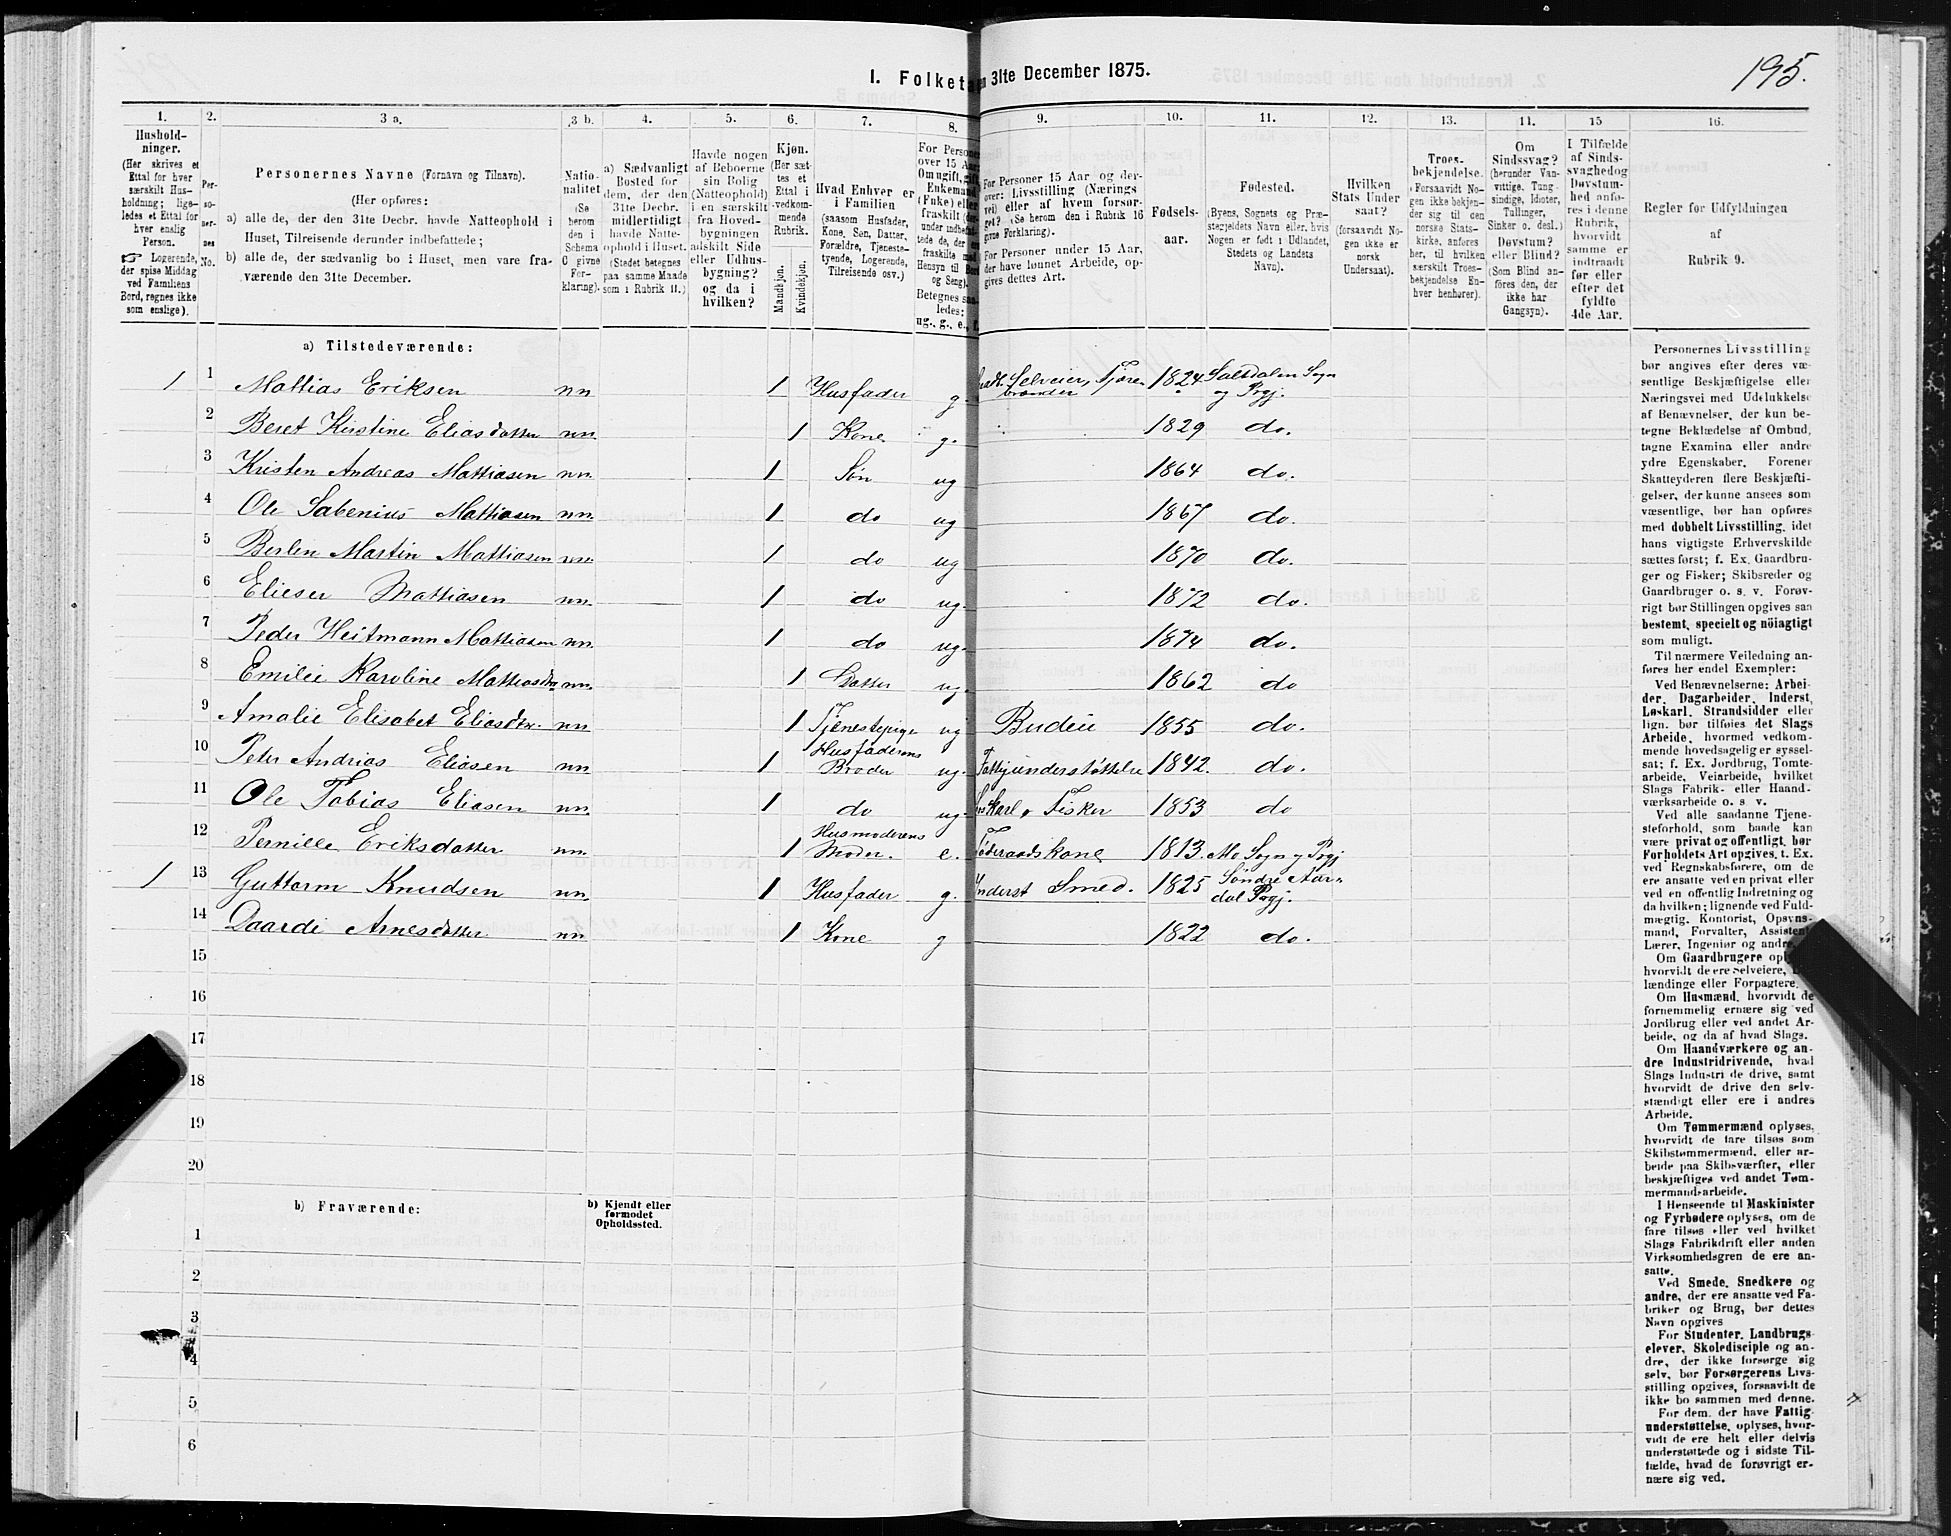 195.
1. Folketæ
n 31te December 1875.
1.
Hushold-
ninger.
(Her skrives et
Ettal for hver
særskilt Hus-
holdning; lige-
ledes et Ettal for
hver enslig
Person.
☞ Logerende,
der spise Middag
ved Familiens
Bord, regnes ikke
som enslige).
2.
Per-
so-
ner-
nes
No.
3 a.
Personernes Navne (Fornavn og Tilnavn).
(Her opføres:
a) alle de, der den 31te Decbr. havde Natteophold i
Huset, Tilreisende derunder indbefattede;
b) alle de, der sædvanlig bo i Huset, men vare fra-
værende den 31te December.
3 b.
Natio-
nalitet
(Se
herom
den i
Schema
C givne
For-
klaring).
4.
a) Sædvanligt
Bosted for
dem, der den
31te Decbr.
midlertidigt
havde Natte-
ophold i Huset.
(Stedet betegnes
paa samme Maade
som i Rubrik 11.)
5.
Havde nogen
af Beboerne
sin Bolig
(Natteophold)
i en særskilt
fra Hoved-
bygningen
adskilt Side
eller Udhus-
bygning?
og da i
hvilken?
6.
Kjøn.
(Her sæt-
tes et
Ettal i
vedkom-
mende
Rubrik.
Mandkjøn.
Kvindekjøn.
7.
Hvad Enhver er
i Familien
(saasom Husfader,
Kone, Søn, Datter,
Forældre, Tjeneste-
tyende, Logerende,
Tilreisende osv.)
8.
For Persone
over 15 Aar
Om ugift, gift,
Enkemand
(Enke) eller
fraskilt (der-
under indbefat-
tede de, der e
fraskilte med
Hensyn til Bord
og Seng).
Betegnes saa-
ledes:
ug., g., e., f.
9.
For Personer 15 Aar og der-
over: Livsstilling (Nærings
vei) eller af hvem forsør-
get? (Se herom den i Rubrik 16
givne Forklaring).
For Personer under 15 Aar,
der have lønnet Arbeide, op-
gives dettes Art.
10.
Fødsels-
aar.
11.
Fødested.
(Byens, Sognets og Præ-
stegjeldets Navn eller, hvis
Nogen er født i Udlandet,
Stedets og Landets
Navn).
12.
Hvilken
Stats Under
saat?
(forsaavidt No-
gen ikke er
norsk
Undersaat).
13.
Troes-
bekjendelse.
(Forsaavidt No-
gen ikke bekjen-
der sig til den
norske Stats-
kirke, anføres
her, til hvilken
særskilt Troes-
bekjendelse En-
hver henhører).
14.
Om
Sindssvag?
(herunder Van-
vittige, Tung-
sindige, Idioter,
Tullinger,
Sinker o. desl.)
Døvstum?
eller Blind?
(Som Blind an-
føres den, der
ikke har
Gangsyn).
15
I Tilfælde
af Sinds-
svaghedog
Døvstum-
hed anfø-
res i denne
Rubrik,
hvorvidt
samme er
indtraadt
før eller
efter det
fyldte
4de Aar.
16.
Regler for Udfyldningen
af
Rubrik 9.
a) Tilstedeværende:
1 1 Mattias Eriksen nn 1 Husfader g. Gaardbr. Selveier, Tjære- 1824 Saltdalen Sogn
brænder og Prgj.
2 Beret Kirstine Eliasdatter nn. 1 Kone g. 1829 do.
3 Kristen Andreas Mattiasen nn. 1 Søn ug 1864 do.
4 Ole Sabenius Mattiasen nn. 1 do ug 1867 do.
5 Berlin Martin Mattiasen nn. 1 do ug 1870 do.
6 Elieser Mattiasen nn. 1 do ug. 1872 do.
7 Peder Heitmann Mattiasen nn. 1 do ug. 1874 do.
8 Emilie Karoline Mattiasdtr nn. 1 Datter ug. 1862 do
9 Amalie Elisabet Eliasdtr. nn. 1 Tjenestepige ug Budeie 1855 do.
10 Peter Andrias Eliasen nn 1 Husfaderens
Broder ug. Fattigunderstøttelse 1842. do.
11 Ole Tobias Eliasen nn. 1 do ug. Løskarl, Fisker 1853 do
12 Pernille Eriksdatter nn. 1 Husmoderens
Moder. e. Føderaadskone 1813. Mo Sogn og Prgj
1 13 Guttorm Knudsen nn. 1 Husfader g. Inderst Smed. 1825 Søndre Aur-
dal Prgj.
14 Daardi Arnesdatter nn 1 Kone g 1822 do.
15
16
17
18
19
20
b) Fraværende:
b) Kjendt eller
formodet
Opholdssted.
1
2
3
4
5
6
Personernes Livsstilling
bør angives efter deres væ-
sentlige Beskjæftigelse eller
Næringsvei med Udelukkelse
af Benævnelser, der kun be-
tegne Beklædelse af Ombud,
tagne Examina eller andre
ydre Egenskaber. Forener
Skatteyderen flere Beskjæfti-
gelser, der kunne ansees som
væsentlige, bør han opføres
med dobbelt Livsstilling, idet
hans vigtigste Erhvervskilde
sættes først; f. Ex. Gaardbru-
ger og Fisker; Skibsreder og
Gaardbruger o. s. v. Forøv-
rigt bør Stillingen opgives saa
bestemt, specielt og nöiagtigt
som muligt.
Til nærmere Veiledning an-
føres her endel Exempler:
Ved Benævnelserne: Arbei-
der, Dagarbeider, Inderst,
Løskarl, Strandsidder eller
lign. bør tilføies det Slags
Arbeide, hvormed vedkom-
mende hovedsagelig er syssel-
sat; f. Ex. Jordbrug, Tomte-
arbeide, Veiarbeide, hvilket
Slags Fabrik- eller Haand-
værksarbeide o. s. v.
Ved alle saadanne Tjene-
steforhold, som baade kan
være privat og offentligt, bør
Forholdets Art opgives, t. Ex.
ved Regnskabsførere, om de
ere ansatte ved en privat eller
ved en offentlig Indretning og
da hvilken; lignende ved Fuld-
mægtig, Kontorist, Opsyns-
mand, Forvalter, Assistent,
Lærer, Ingeniør og andre.
Om Gaardbrugere opl
hvorvidt de ere Selveiere,
lændinge eller Forpagtere.
Om Husmænd, hvorvidt de
fornemmelig ernære sig ved
Jordbrug eller ved andet Ar-
beide, og da af hvad Slags.
Om Haandværkere og an-
dre Industridrivende, hvad
Slags Industri de drive, samt
hvorvidt de drive den selv-
stændigt eller ere i andres
Arbeide.
Om Tømmermænd oplyses,
hvorvidt de fare tilsøs som
Skibstømmermænd, eller ar-
beide paa Skibsværfter, eller
beskjæftiges ved andet Tøm-
mermandsarbeide.
I Henseende til Maskinister
og Fyrbødere oplyses, om de
fare tilsøs eller ved hvilket
Slags Fabrikdrift eller anden
Virksomhedsgren de ere an-
satte.
Ved Smede, Snedkere og
andre, der ere ansatte ved Fa-
briker og Brug, bør dettes
Navn opgives
For Studenter, Landbrugs-
elever, Skoledisciple og an-
dre, der ikke forsørge sig
selv, bør Forsørgerens Livs-
stilling opgives, forsaavidt de
ikke bo sammen med denne.
For dem, der have Fattig-
understøttelse, oplyses, hvor-
vidt de ere helt eller delvis
understøttede og i sidste Til-
fælde, hvad de forøvrigt er-
nære sig ved.